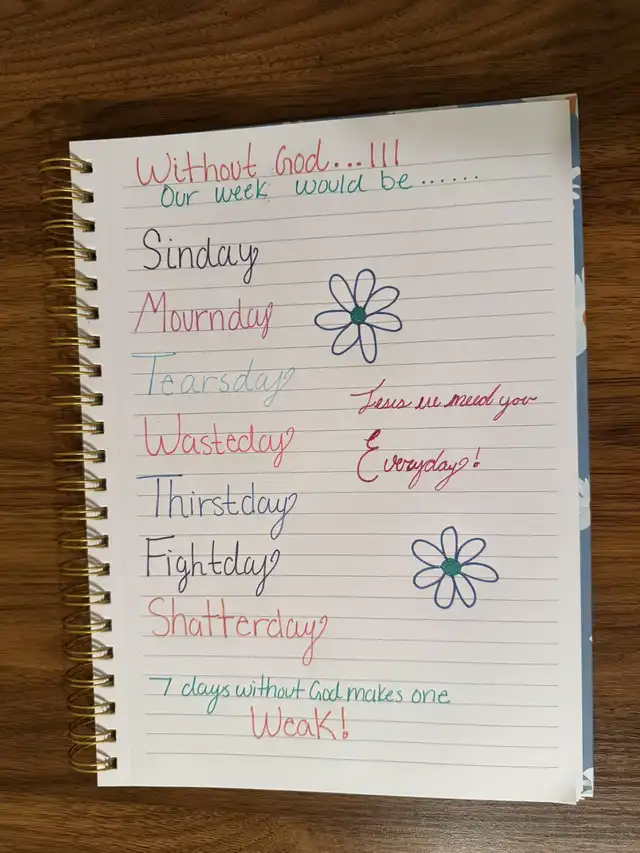 Without God...!!!
Our week would be......
Sinday
Mournday
Tearsday
Wasteday
Jesus we need you
Everyday!
Thirstday
Fightday
Shatterday
7 days without God makes one
Weak!